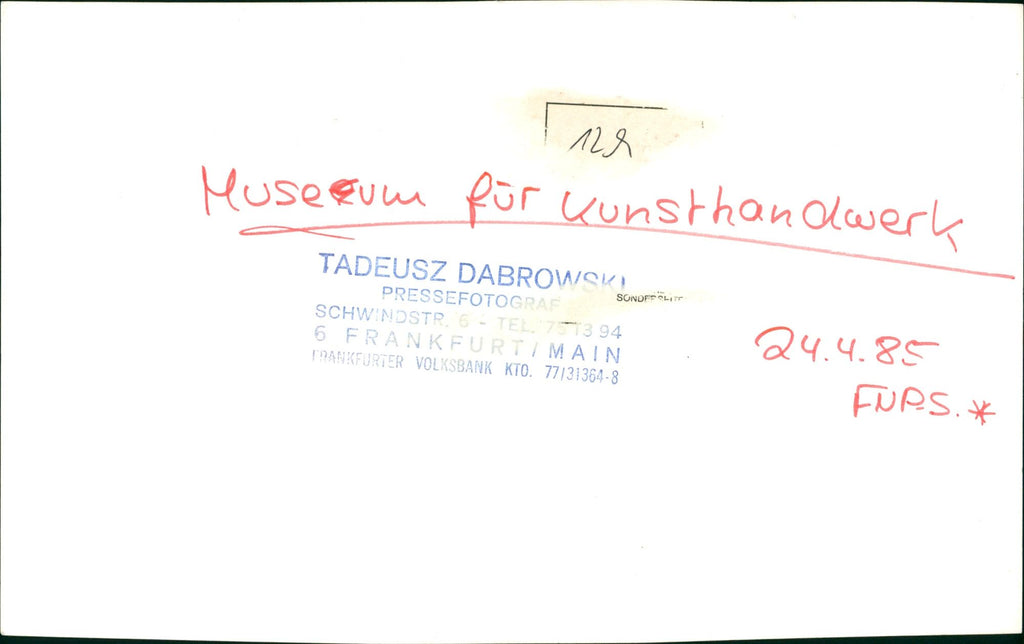 Museum für Kunsthandwerk
TADEUSZ DABROWSKI
PRESSEFOTOGRAF
SCHWINDSTR. 6 - TEL. 75 13 94
6 FRANKFURT/MAIN
FRANKFURTER VOLKSBANK KTO. 77/31364-8
24.4.85
FNP-S. *